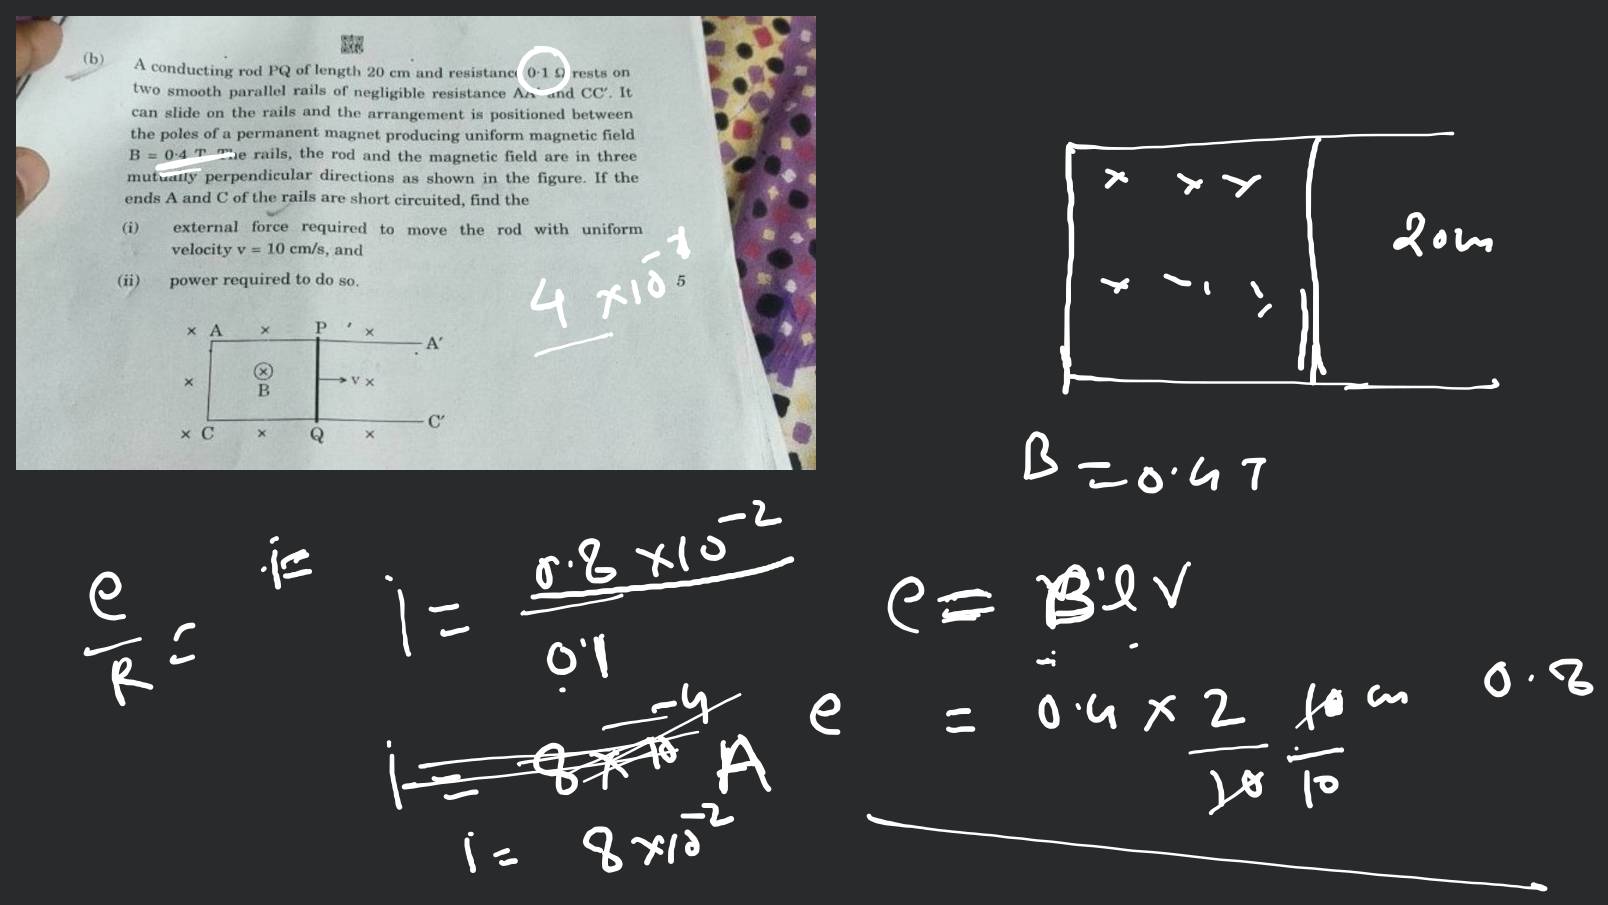 (b) A conducting rod PQ of length 20 cm and resistance 0·1 Ω rests on
two smooth parallel rails of negligible resistance AA' and CC'. It
can slide on the rails and the arrangement is positioned between
the poles of a permanent magnet producing uniform magnetic field
B = 0·4 T. The rails, the rod and the magnetic field are in three
mutually perpendicular directions as shown in the figure. If the
ends A and C of the rails are short circuited, find the
(i) external force required to move the rod with uniform
velocity v = 10 cm/s, and
(ii) power required to do so.
5
4 × 10
× A × P × A'
× ⊗ B → v ×
× C × Q × C'
× × ×
×
20
B = 0.4 T
e/R = i=
i = 0.8 × 10⁻² / 0.1
i = 8 × 10⁻⁴ A
i = 8 × 10⁻²
e = B l v
e = 0.4 × 2/10 10/10 0.8